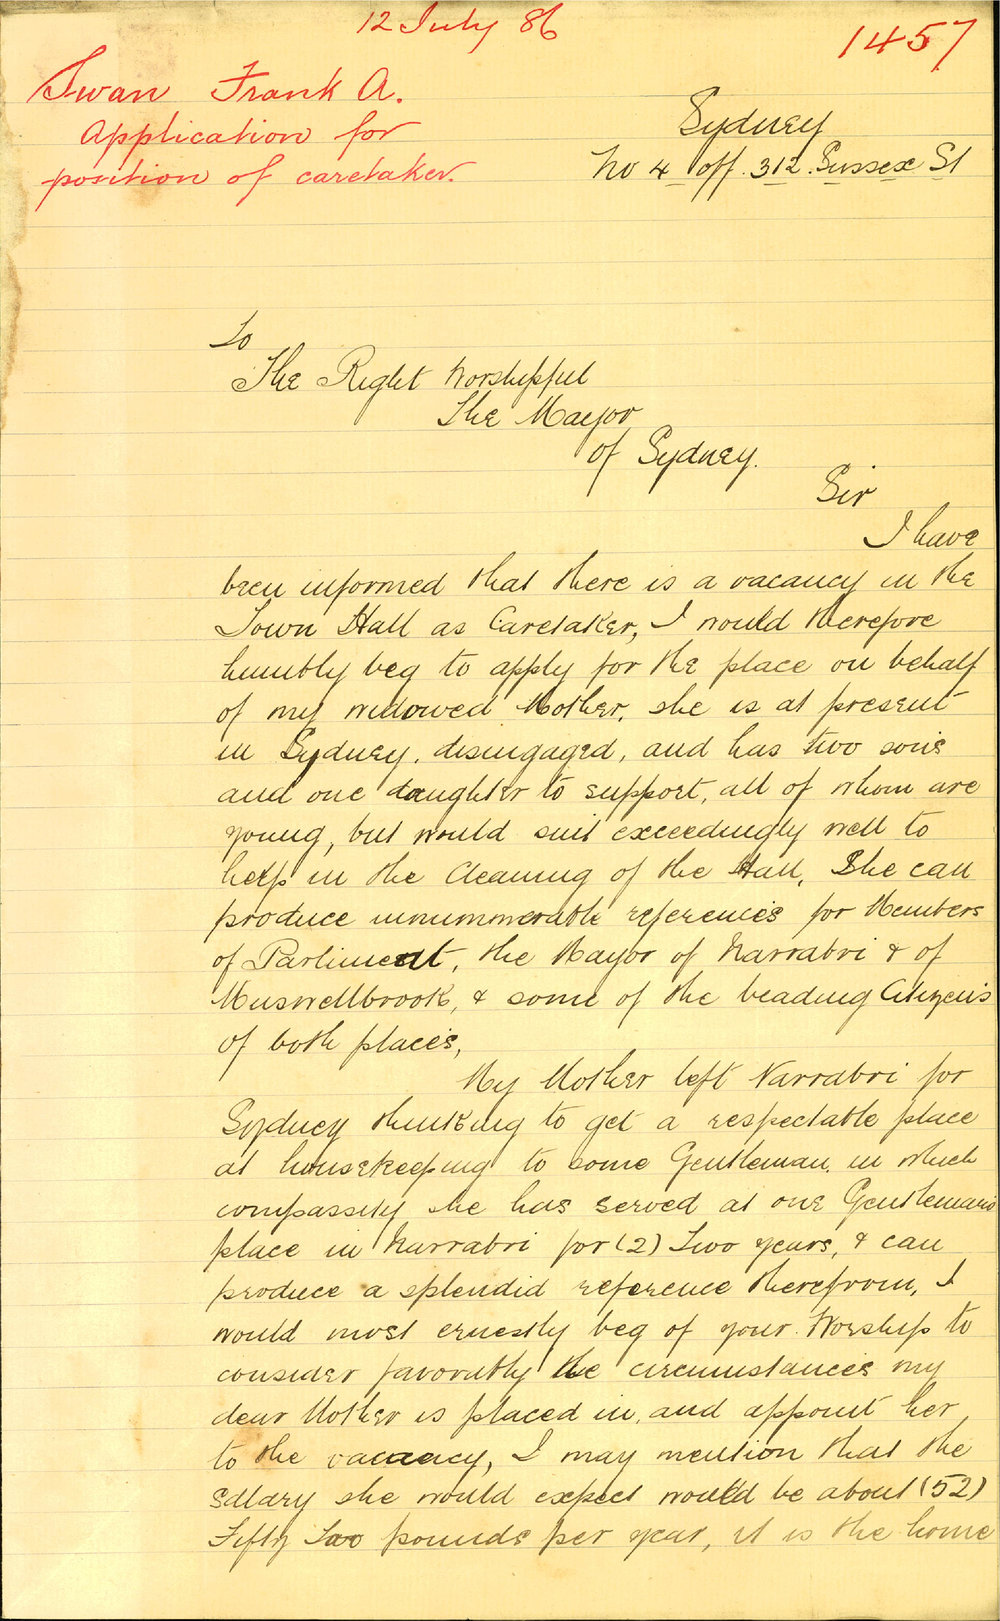 12 July 86
1457
Swan Frank A.
Application for
position of caretaker.
Sydney
No 4 off. 312. Sussex St
To
The Right Worshipful
The Mayor
of Sydney.
Sir
I have
been informed that there is a vacancy in the
Town Hall as Caretaker, I would therefore
humbly beg to apply for the place on behalf
of my widowed Mother, she is at present
in Sydney, disengaged, and has two sons
and one daughter to support, all of whom are
young, but would suit exceedingly well to
help in the cleaning of the Hall, She can
produce innummerable references for Members
of Parliment, the Mayor of Narrabri & of
Muswellbrook, & some of the leading Citizens
of both places,
My Mother left Narrabri for
Sydney thinking to get a respectable place
at housekeeping to some Gentleman, in which
compassity she has served at one Gentlemans
place in Narrabri for (2) Two years, & can
produce a splendid reference therefrom, I
would most ernestly beg of your Worship to
consider favorably the circumstances my
dear Mother is placed in, and appoint her
to the vacancy, I may mention that the
salary she would expect would be about (52)
Fifty Two pounds per year, it is the home